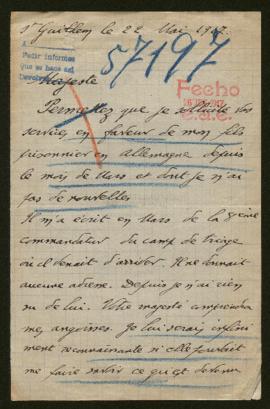 St Guilhem le 22 Mai 1917.
57197
A
Pedir informes
que se haga así
Fecho
Majesté
Permettez que je sollicite vos
services en faveur de mon fils
prisonnier en Allemagne depuis
le mois de Mars et dont je n'ai
pas de nouvelles
Il m'a écrit en Mars de la
commandatur du camp de triage
où il venait d'arriver. Il ne donnait
aucune adresse. Depuis je n'ai rien
su de lui. Votre majesté comprendra
mes angoisses. Je lui serais infini
ment reconnaissante si elle pouvait
me faire savoir ce qu'est devenu